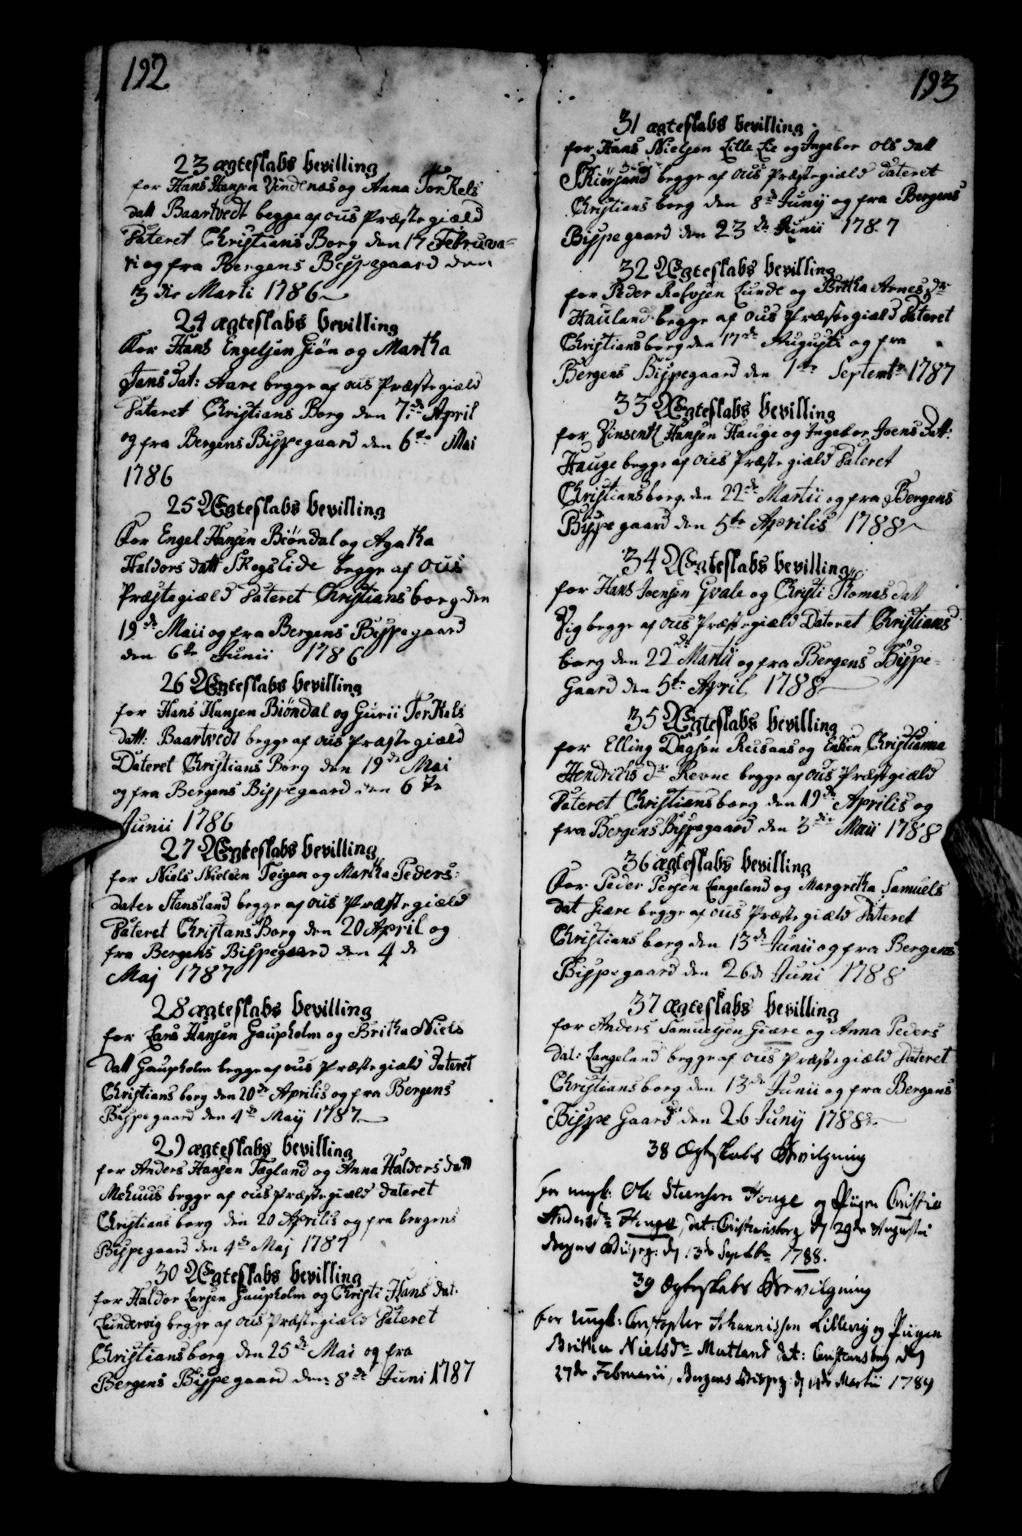 192
23 ægteskabs bevilling
for Hans Hansen Vindenæs og Anna Torkels
datt Baartvedt begge af ous Præstegiæld
Dateret Christians Borg den 17 Februva=
ri og fra Bergens Bispegaard den
3 die Marti 1786
24 ægteskabs bevilling
For Hans Engelsen Giøn og Martha
Jens Dat: Aare begge af ous Præstegiæld
Dateret Christians Borg den 7de April
og fra Bergens Bispegaard den 6te Mai
1786
25 Ægteskabs bevilling
For Engel Hansen Biøndal og Agatha
Haldors datt Skogslide begge af ous
Præstegiæld Dateret Christiansborg den
19de Maii og fra Bergens Bispegaard
den 6te Junii 1786
26 Ægteskabs bevilling
for Hans Hansen Biøndal og Gurii Torkels
datt: Baartvedt begge af ous Præstegiæld
Dateret Christians Borg den 19de Mai
og fra Bergens Bispegaard den 6te
Junii 1786
27 Ægteskabs bevilling
for Niels Nielsen Teigen og Martha Peders:
dater Stensland begge af ous Præstegiæld
Dateret Christans Borg den 20 April og
fra Bergens Bispegaard den 4 de
Maj 1787
28 ægteskabs bevilling
for Lars Hansen Gaupholm og Britha Niels
datt Gaupholm begge af ous Præstegiæld Dateret
Christians borg den 20de Aprilis og fra Bergens
Bispegaard den 4de Maij 1787
29 ægteskabs bevilling
for Anders Hansen Tægland og Anna Haldors datt
Mehuus begge af ous Præstegiæld dateret
Christians borg den 20 Aprilis og fra bergens
Bispegaard den 4de Maj 1787
30 Ægteskabs bevilling
for Haldor Larsen Gaupholm og Christi Hans dat.
Lundervig begge af ous Præstegiæld Dateret
Christiansborg den 25de Mai og fra
Bergens Bispegaard den 8de Juni 1787
193
31 ægteskabs bevilling
for Hans Nielsen Lille Lie og Ingebor Ols datt
Skiørsand begge af ous Præstegiæld dateret
Christians borg den 8de Junij og fra Bergens
Bispegaard den 23de Junii 1787
32 Ægteskabs bevilling
for Peder Rolvsen Lunde og Britha Arnes dr
Hauland begge af ous Præstegiæld Dateret
Christiansborg den 17de Augusti og fra
Bergens Bispegaard den 1te Septembr 1787
33 Ægteskabs bevilling
for Vinsentz Hansen Hauge og Ingebor Joens Datt:
Hauge begge af ous Præstegiæld Dateret
Christiansborg den 22de Martii og fra Bergens
Bispegaard den 5te Aprilis 1788
34 Ægteskabs bevilling
for Hans Joensen Qvale og Christi Thomas dat
Vig begge af ous Præstegiæld Dateret Christians
borg den 22de Martii og fra Bergens Bispe-
Gaard den 5te April 1788
35 Ægteskabs bevilling
for Elling Dagsøn Reisaas og Enken Christianna
Hendrichs dr Revne begge af ous Præstgiæld
Dateret Christiansborg den 19de Aprilis og
fra Bergens Bispegaard den 3die Maii 1788
36 ægteskabs bevilling
For Peder Persen Langeland og Margretha Samuels
dat Giære begge af ous Præstegiæld Dateret
Christiansborg den 13de Junii og fra Bergens
Bispegaard den 26de Juni 1788
37 ægteskabs bevilling
for Anders Samuelsen Giære og Anna Peders
dat: Langeland begge af ous Præstegiæld Dateret
Christiansborg den 13de Junii og fra Bergens
Bispe Gaard den 26 Junij 1788
38 Ægteskabs Bevilgning
for ungk: Ole Steensen Houge og Pigen Christie
Andersdr Houge, dat: Christiansborg d 29de Augustii
Bergens Bispeg: d 13de Septbr 1788.
39 Ægteskabs Bevilgning
for Ungk: Christopher Johannissen Lillevig og Pigen
Britha Nielsdr Mutland dat: Christiansborg den
27de Februarii, Bergens Bispeg d 14de Martii 1789